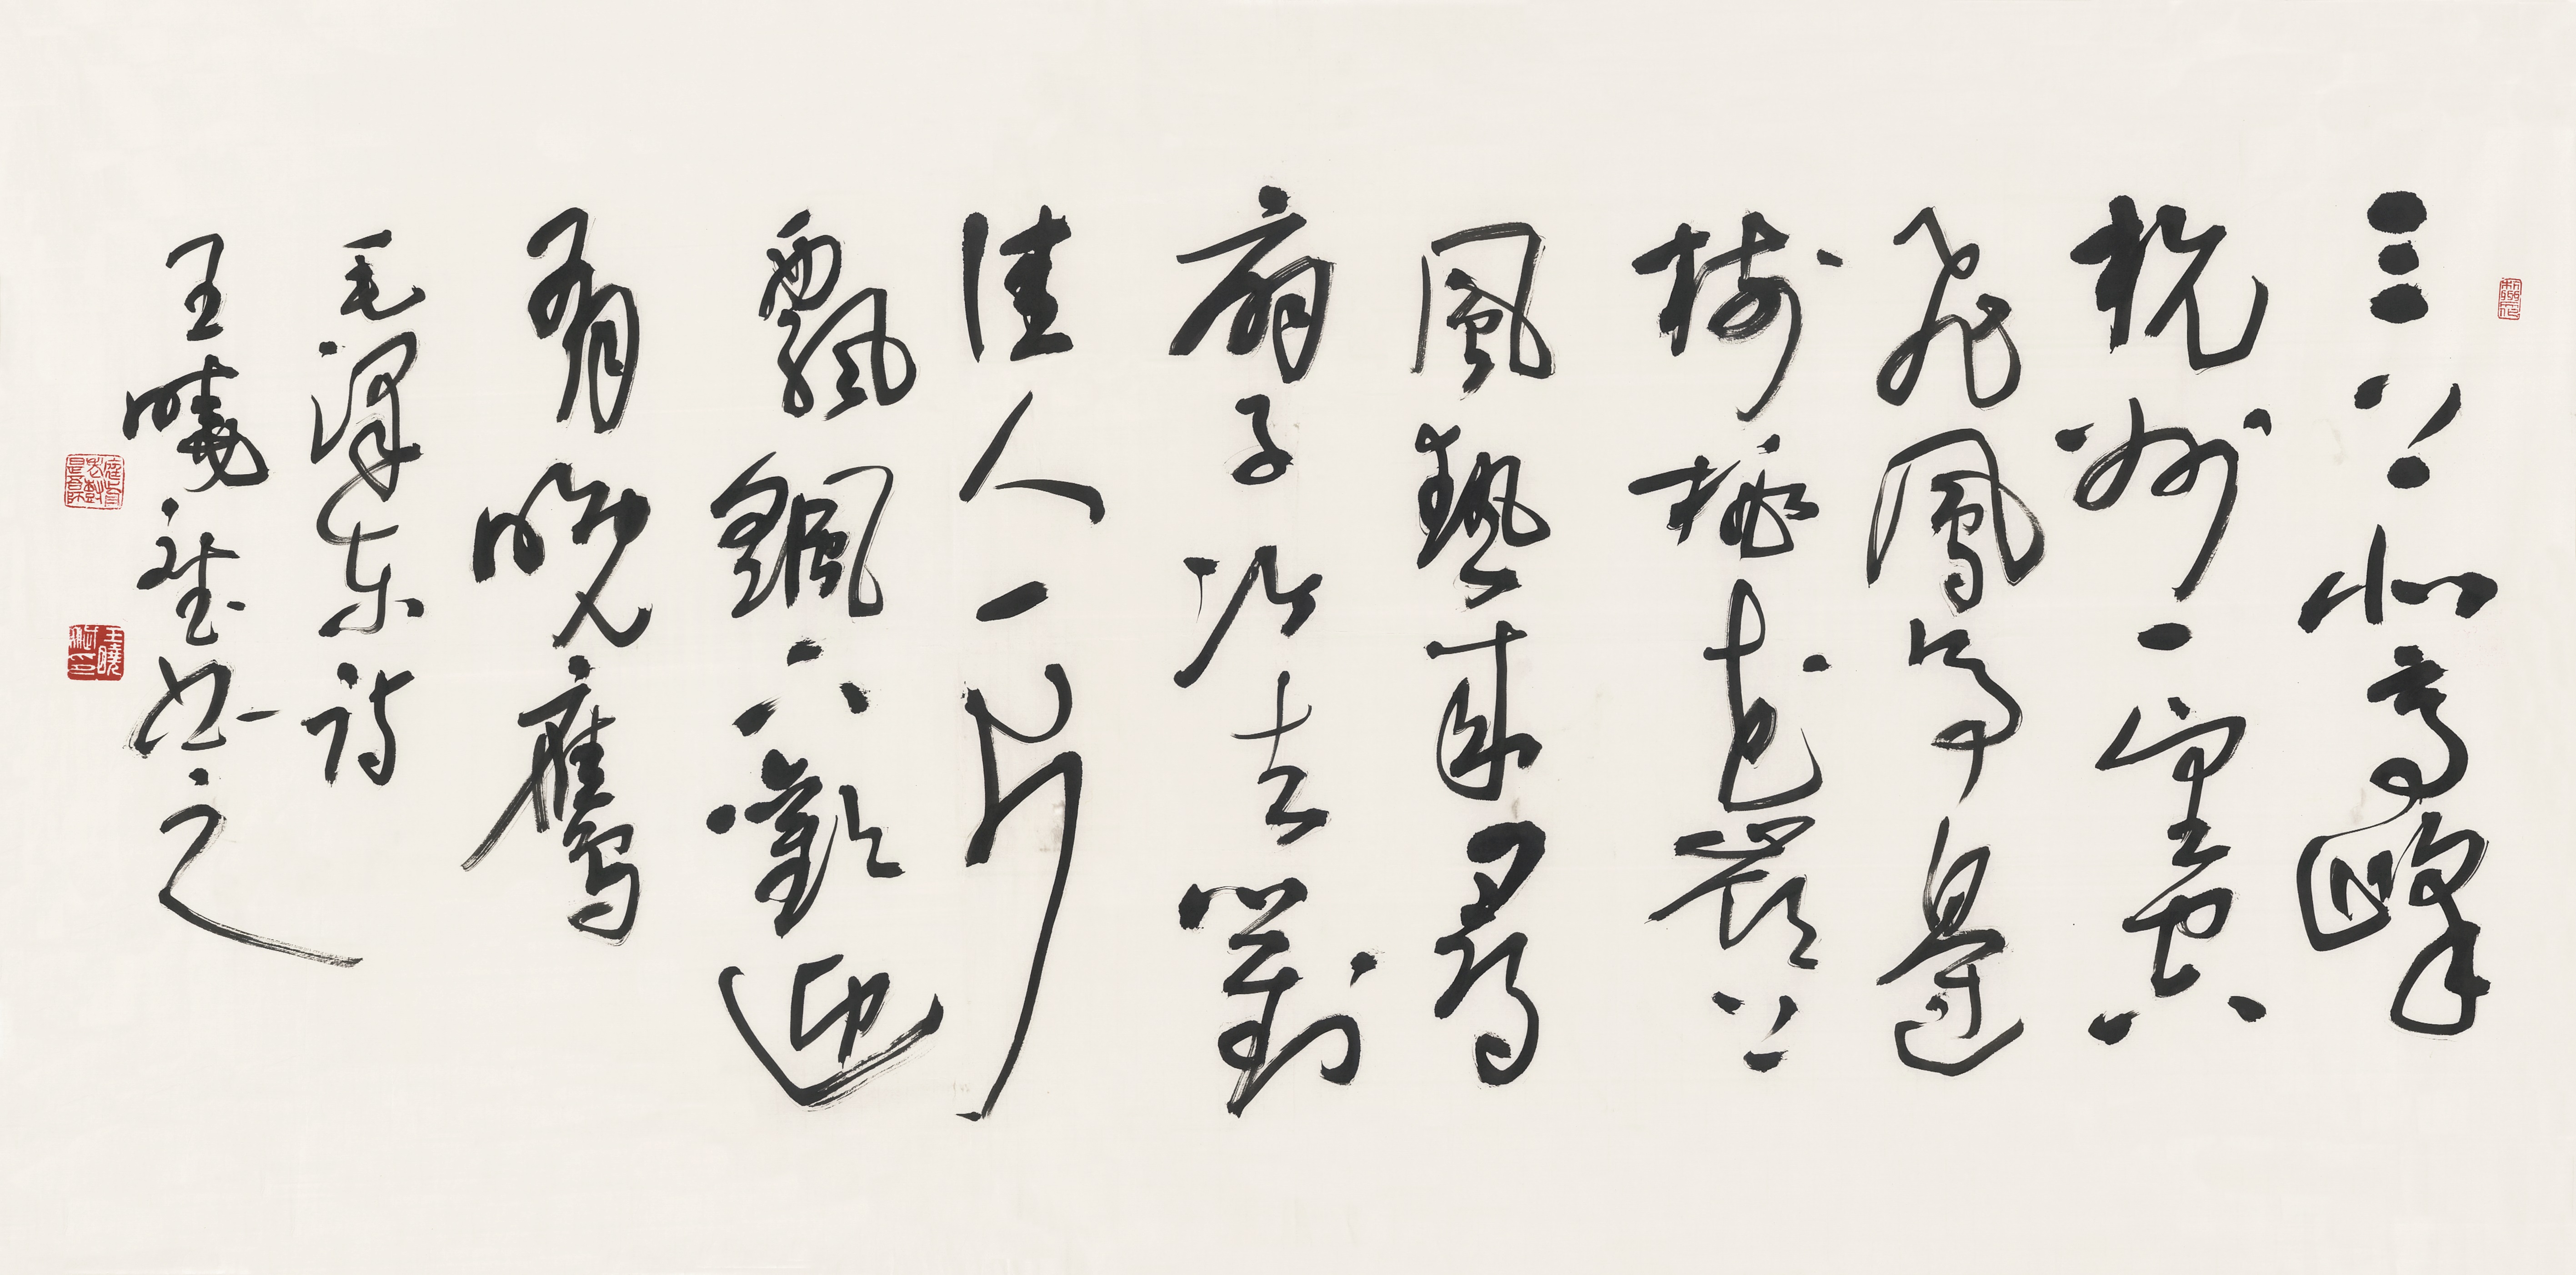 三上北高峰
杭州一望空
飛鳳亭邊
樹桃花嶺上
風熱來尋
扇子冷去對
佳人一片
飄颻下歡迎
有晚鷹
毛澤東詩
王曉書之